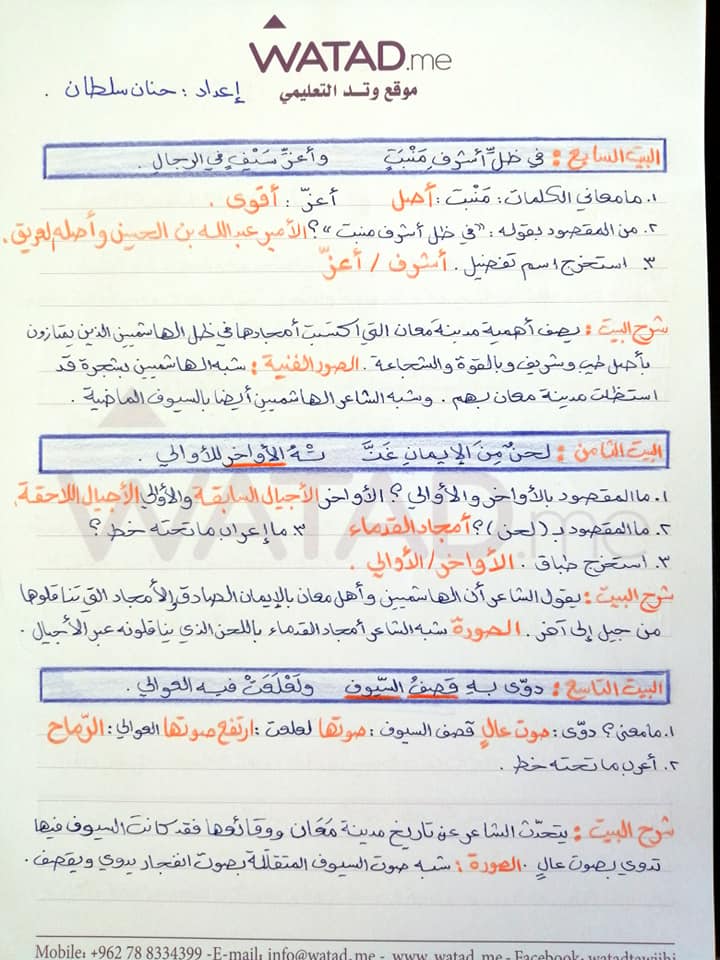 WATAD.me
موقع وتد التعليمي
إعداد : حنان سلطان .
البيت السابع : في ظلِّ أشرفِ مَنْبَتٍ وأعزِّ سَيْفٍ في الرجالِ .
١. ما معاني الكلمات : مَنْبت : أصل أعزّ : أقوى .
٢. من المقصود بقوله : "في ظل أشرف منبت" ؟ الأمير عبدالله بن الحسين وأصله لعريق .
٣. استخرج اسم تفضيل . أشرف / أعزّ
شرح البيت : يصف أهمية مدينة مَعان التي اكتسبت أمجادها في ظل الهاشميين الذين يمتازون
بأصل طيب وشريف وبالقوة والشجاعة . الصور الفنية : شبه الهاشميين بشجرة قد
استظلت مدينة معان بهم . وشبه الشاعر الهاشميين أيضا بالسيوف الماضية .
البيت الثامن : لحنٌ مِنَ الإيمانِ غَنَّ تْهُ الأواخر للأوالي .
١. ما المقصود بالأواخر والأوالي ؟ الأواخر الأجيال السابقة والأوالي الأجيال اللاحقة .
٢. ما المقصود بـ (لحن) ؟ أمجاد القدماء ٣. ما إعراب ما تحته خط ؟
٣. استخرج طباق . الأواخر / الأوالي .
شرح البيت : يقول الشاعر أن الهاشميين وأهل معان بالإيمان الصادق والأمجاد التي تناقلوها
من جيل إلى آخر . الصورة شبه الشاعر أمجاد القدماء باللحن الذي يناقلونه عبر الأجيال .
البيت التاسع : دوّى بهِ قَصفُ السّيوف ولَعْلَعَتْ فيه العوالي .
١. ما معنى ؟ دوّى : صوت عالٍ قصف السيوف : صوتها لعلعت : ارتفع صوتها العوالي : الرّماح
٢. أعرب ما تحته خط .
شرح البيت : يتحدّث الشاعر عن تاريخ مدينة مَعَان ووقائعها فقد كانت السيوف فيها
تدوي بصوت عالٍ . الصورة : شبه صوت السيوف المتقاتلة بصوت انفجار يدوي ويقصف .
Mobile: +962 78 8334399 -E-mail: info@watad.me - www.watad.me - Facebook: watadtawjihi
WATAD.me